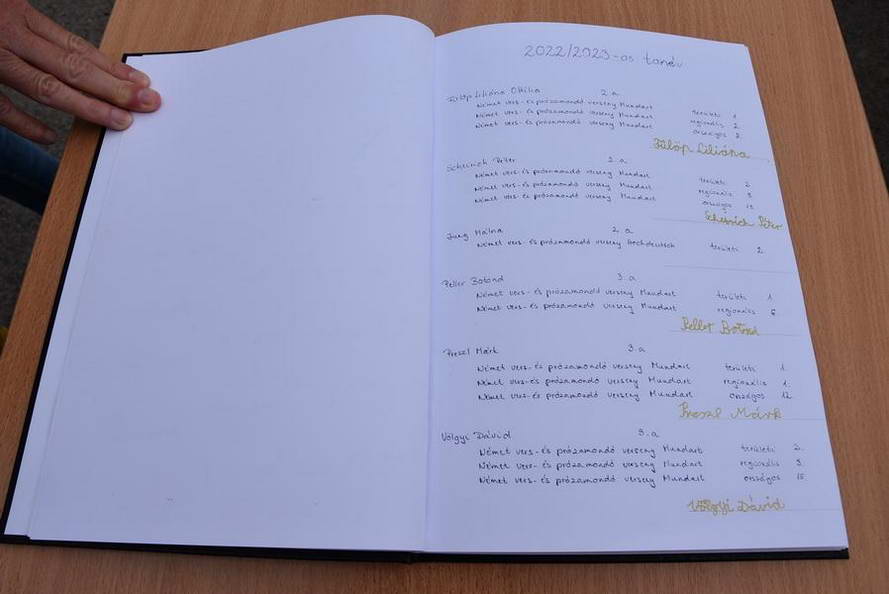 2022/2023-as tanév
Fülöp Liliána Ottilia 2.a
Német vers- és prózamondó verseny Mundart területi 1.
Német vers- és prózamondó verseny Mundart regionális 2.
Német vers- és prózamondó verseny Mundart országos 2.
Fülöp Liliána
Scheirich Péter 2.a
Német vers- és prózamondó verseny Mundart területi 2.
Német vers- és prózamondó verseny Mundart regionális
Német vers- és prózamondó verseny Mundart országos
Scheirich Péter
Jung Málna 2.a
Német vers- és prózamondó verseny Hochdeutsch területi 2.
Peller Botond 3.a
Német vers- és prózamondó verseny Mundart területi 1.
Német vers- és prózamondó verseny Mundart regionális 6.
Peller Botond
Preszl Márk 3.a
Német vers- és prózamondó verseny Mundart területi 1.
Német vers- és prózamondó verseny Mundart regionális 1.
Német vers- és prózamondó verseny Mundart országos 12.
Preszl Márk
Völgyi Dávid 3.a
Német vers- és prózamondó verseny Mundart területi 2.
Német vers- és prózamondó verseny Mundart regionális 3.
Német vers- és prózamondó verseny Mundart országos 15
Völgyi Dávid